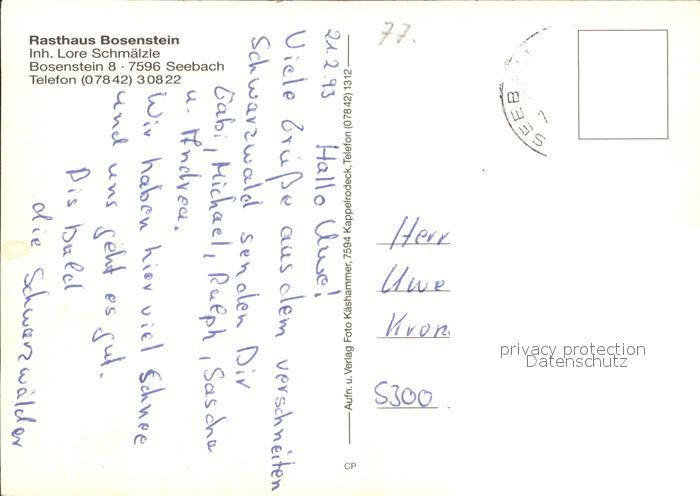 Rasthaus Bosenstein
Inh. Lore Schmälzle
Bosenstein 8 · 7596 Seebach
Telefon (07842) 30822
21.2.93 Hallo Uwe!
Viele Grüße aus dem verschneiten
Schwarzwald senden Dir
Gabi, Michael, Ralph, Sascha
u. Andrea.
Wir haben hier viel Schnee
und uns geht es gut.
Bis bald
die Schwarzwälder
Aufn. u. Verlag Foto Käshammer, 7594 Kappelrodeck, Telefon (07842) 1312
CP
77.
SEEB
7
Herr
Uwe
Kron
5300
privacy protection
Datenschutz